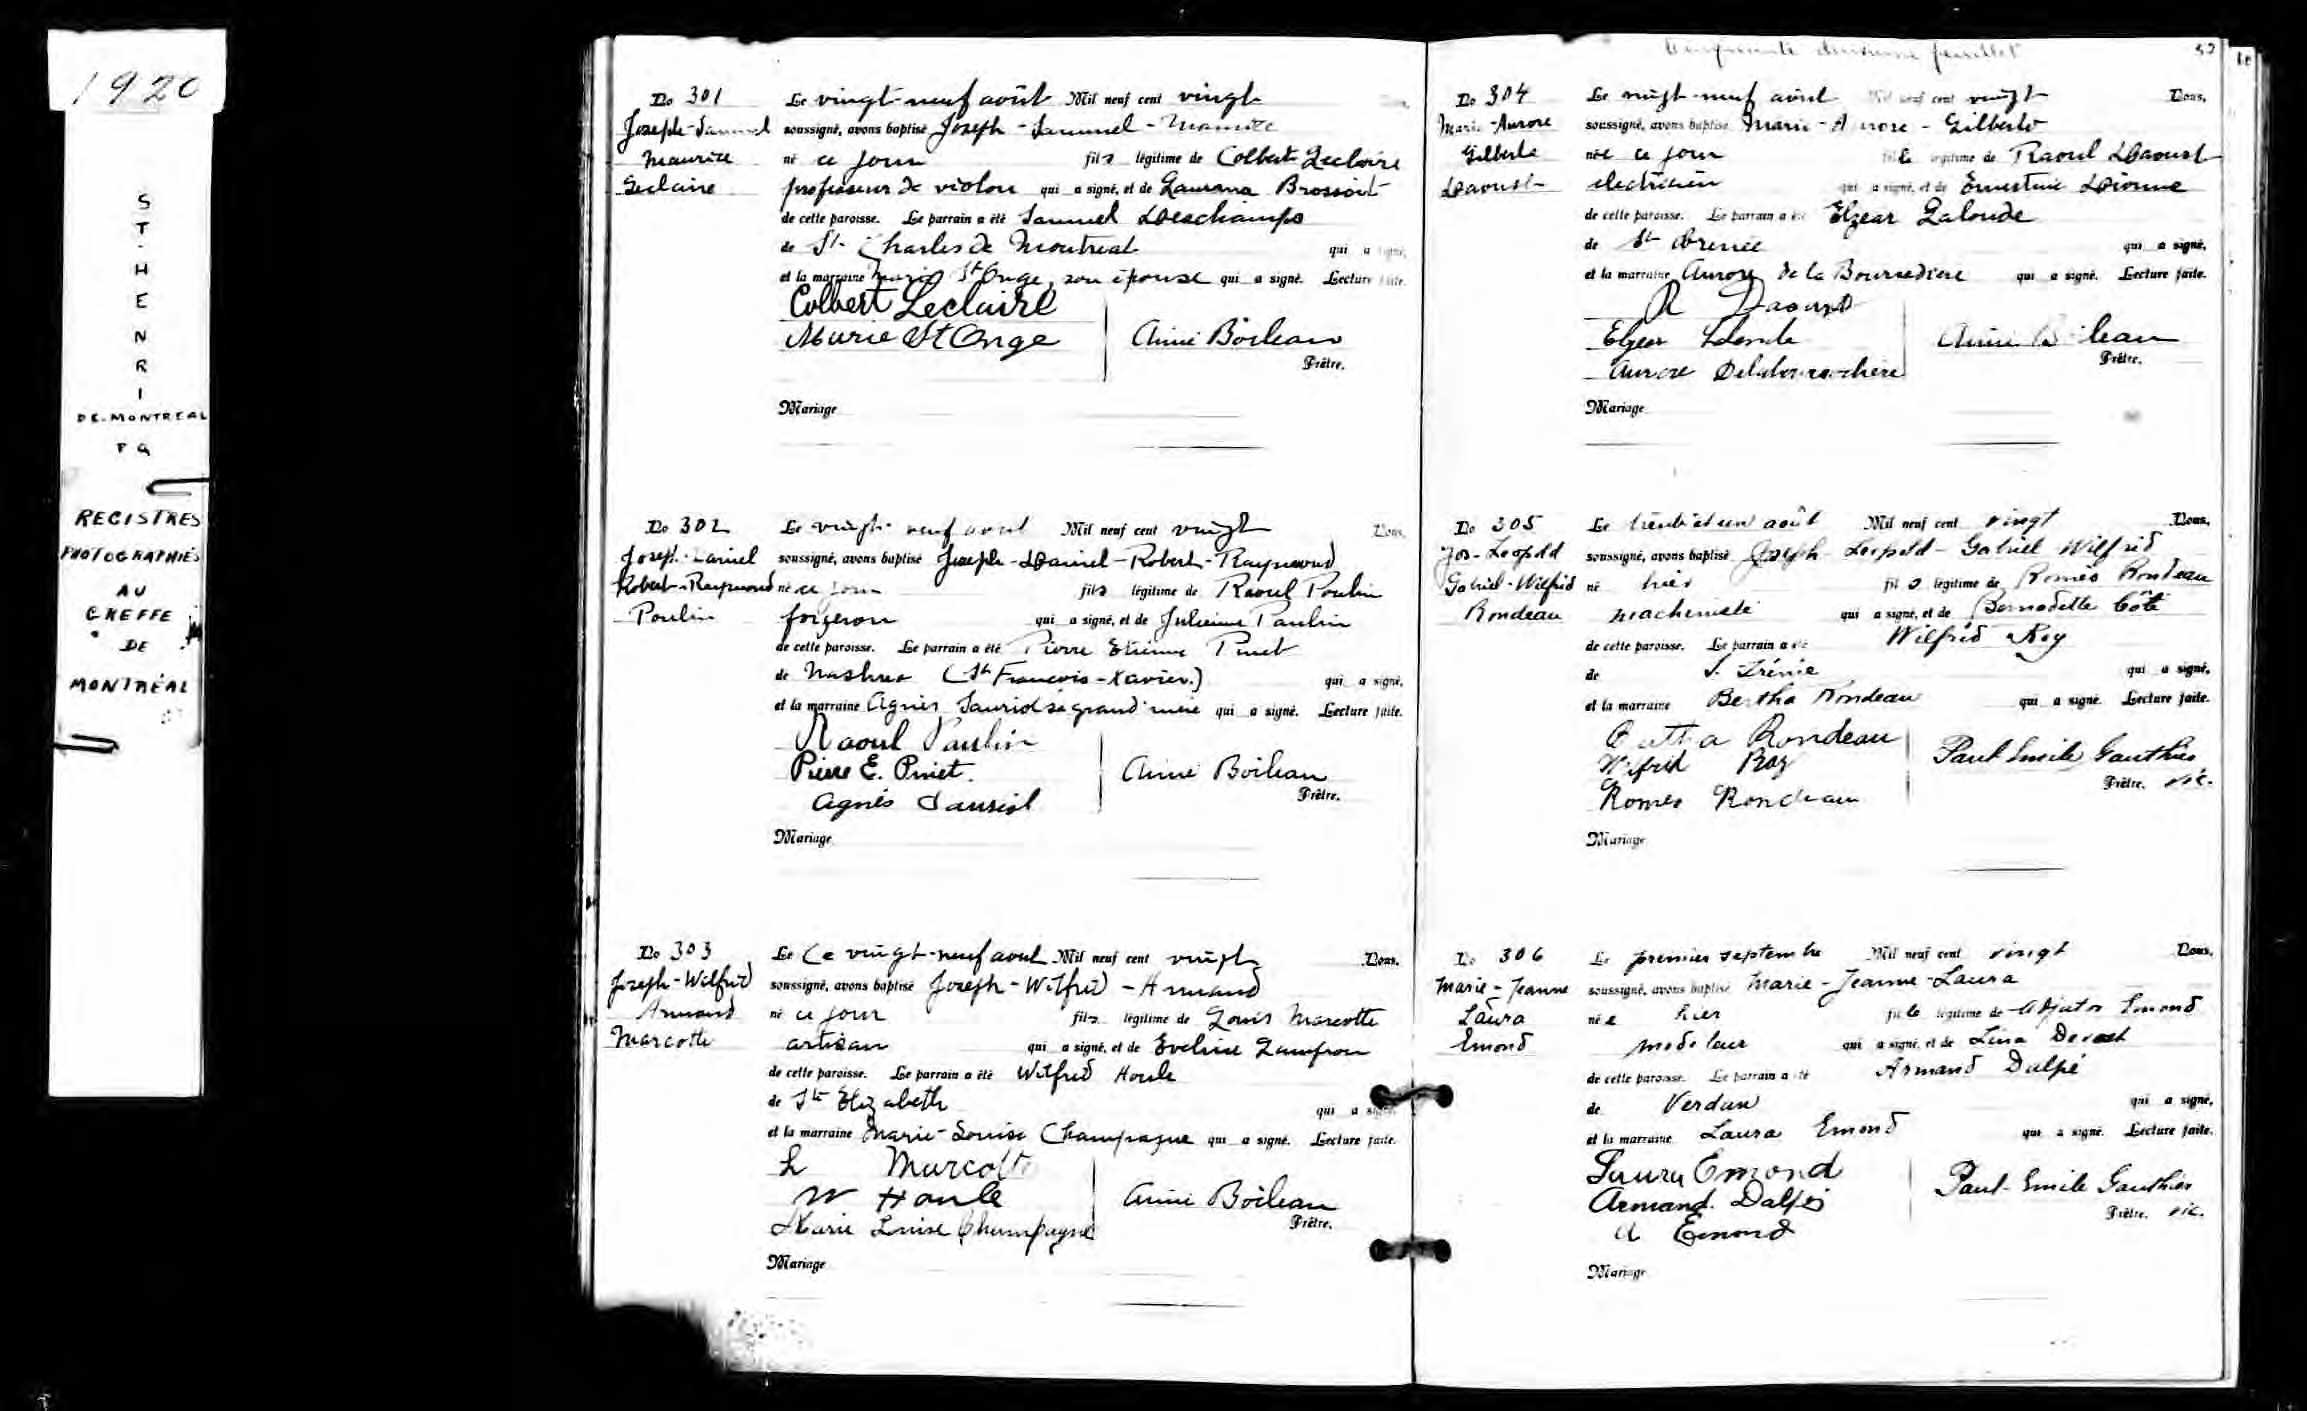 1920
ST. HENRI
DE-MONTREAL
P Q
REGISTRES
PHOTOGRAPHIÉS
AU
GREFFE
DE
MONTRÉAL
No 301
Joseph-Samuel
Maurice
Leclaire
Le vingt-neuf août Mil neuf cent vingt
soussigné, avons baptisé Joseph-Samuel-Maurice
né ce jour fils légitime de Colbert Leclaire
professeur de violon qui a signé, et de Laurana Brossoit
de cette paroisse. Le parrain a été Samuel Deschamps
de St Charles de Montreal qui a signé,
et la marraine Marie St Onge, son épouse qui a signé. Lecture faite.
Colbert Leclaire
Marie St Onge
Aimé Boileau
Prêtre.
Mariage
No 302
Joseph-Daniel
Robert-Raymond
Poulin
Le vingt-neuf août Mil neuf cent vingt Nous,
soussigné, avons baptisé Joseph-Daniel-Robert-Raymond
né ce jour fils légitime de Raoul Poulin
forgeron qui a signé, et de Julienne Paulin
de cette paroisse. Le parrain a été Pierre Etienne Pinet
de Nashua (St François-Xavier.) qui a signé,
et la marraine Agnès Sauriol sa grand'mère qui a signé. Lecture faite.
Raoul Paulin
Pierre E. Pinet.
Agnès Sauriol
Aimé Boileau
Prêtre.
Mariage
No 303
Joseph-Wilfrid
Armand
Marcotte
Le Ce vingt-neuf août Mil neuf cent vingt Nous,
soussigné, avons baptisé Joseph-Wilfrid-Armand
né ce jour fils légitime de Louis Marcotte
artisan qui a signé, et de Eveline Lampron
de cette paroisse. Le parrain a été Wilfrid Houle
de Ste Elizabeth qui a signé,
et la marraine Marie-Louise Champagne qui a signé. Lecture faite.
L Marcotte
W Houle
Marie Louise Champagne
Aimé Boileau
Prêtre.
Mariage
Cinquante deuxième feuillet 52
No 304
Marie-Aurore
Gilberte
Daoust
Le vingt-neuf août Mil neuf cent vingt Nous,
soussigné, avons baptisé Marie-Aurore-Gilberte
née ce jour fille légitime de Raoul Daoust
electricien qui a signé, et de Ernestine Dionne
de cette paroisse. Le parrain a été Elzear Lalonde
de St Irenée qui a signé,
et la marraine Aurore de la Bourrediere qui a signé. Lecture faite.
R Daoust
Elzear Lalonde
Aurore
Aimé Boileau
Prêtre.
Mariage
No 305
Jos-Leopold
Gabriel-Wilfrid
Rondeau
Le trente et un août Mil neuf cent vingt Nous,
soussigné, avons baptisé Joseph Leopold-Gabriel Wilfrid
né hier fils légitime de Roméo Rondeau
machiniste qui a signé, et de Bernadette Côté
de cette paroisse. Le parrain a été Wilfrid Roy
de S. Irénée qui a signé,
et la marraine Bertha Rondeau qui a signé. Lecture faite.
Bertha Rondeau
Wilfrid Roy
Roméo Rondeau
Paul Emile Gauthier
Prêtre. vic.
Mariage
No 306
Marie-Jeanne
Laura
Emond
Le premier septembre Mil neuf cent vingt Nous,
soussigné, avons baptisé Marie-Jeanne-Laura
née hier fille légitime de Adjutor Emond
modeleur qui a signé, et de Lina
de cette paroisse. Le parrain a été Armand Dalpé
de Verdun qui a signé,
et la marraine Laura Emond qui a signé. Lecture faite.
Laura Emond
Armand. Dalpé
A Emond
Paul-Emile Gauthier
Prêtre. vic.
Mariage